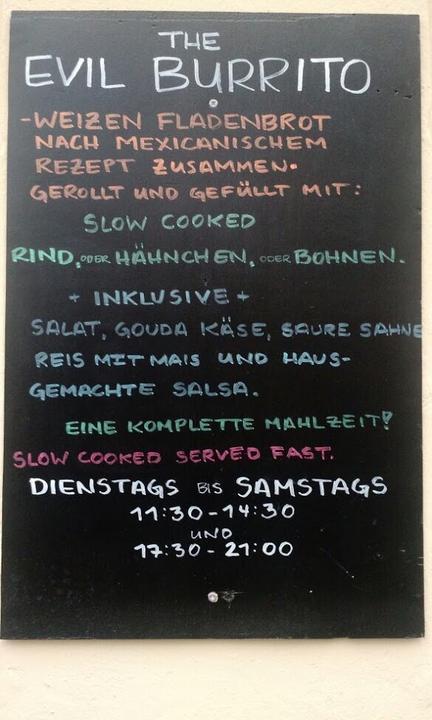 THE
EVIL BURRITO
-WEIZEN FLADENBROT
NACH MEXICANISCHEM
REZEPT ZUSAMMEN-
GEROLLT UND GEFÜLLT MIT:
SLOW COOKED
RIND, ODER HÄHNCHEN, ODER BOHNEN.
+ INKLUSIVE +
SALAT, GOUDA KÄSE, SAURE SAHNE
REIS MIT MAIS UND HAUS-
GEMACHTE SALSA.
EINE KOMPLETTE MAHLZEIT!
SLOW COOKED SERVED FAST.
DIENSTAGS BIS SAMSTAGS
11:30-14:30
UND
17:30-21:00